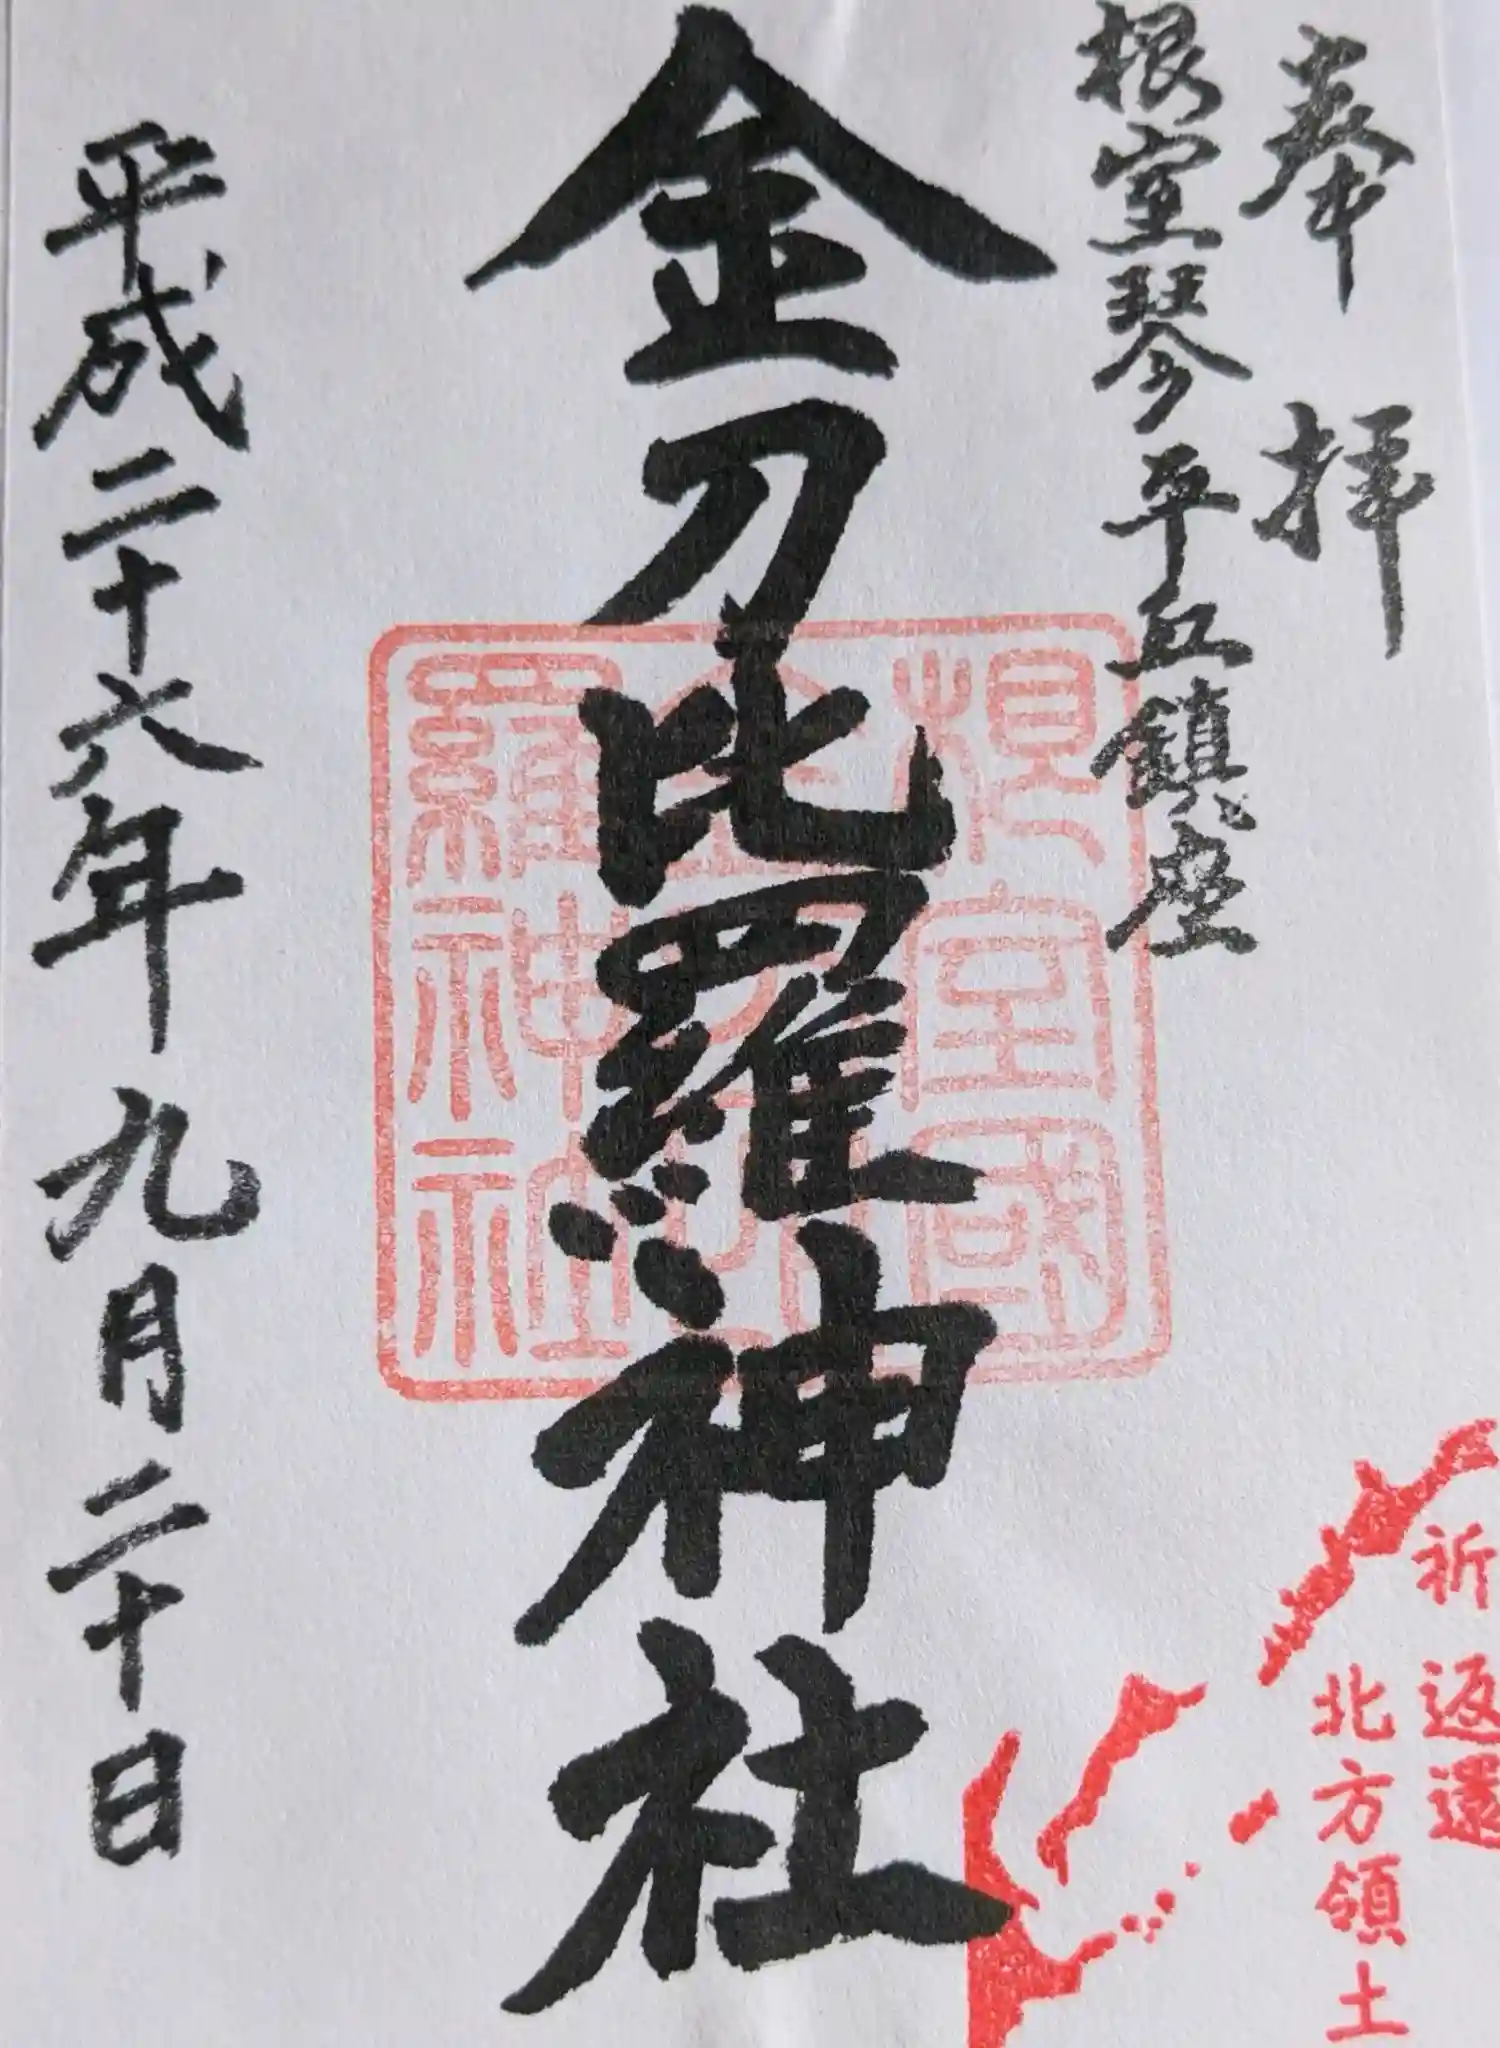 奉拝
根室琴平丘鎮座
金刀比羅神社
平成二十六年九月二十日
根室國
金刀比
羅神社
祈返還
北方領土